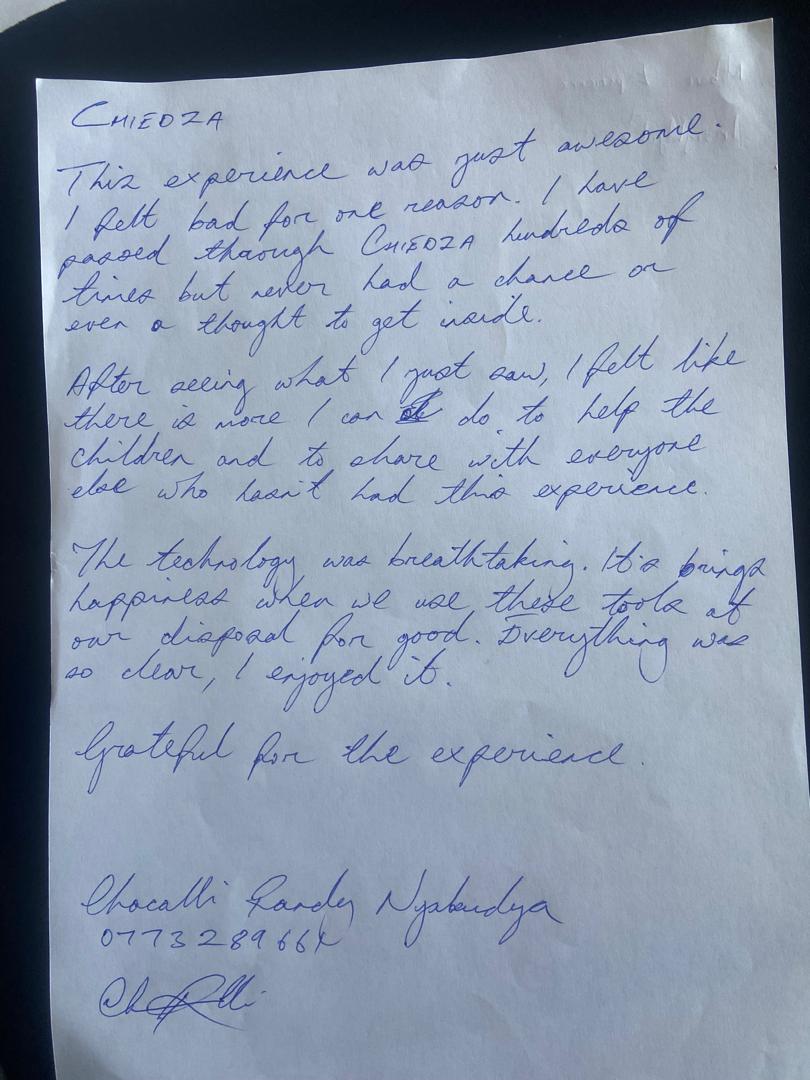 CHIEDZA
This experience was just awesome.
I felt bad for one reason. I have
passed through CHIEDZA hundreds of
times but never had a chance or
even a thought to get inside.
After seeing what I just saw, I felt like
there is more I can do to help the
children and to share with everyone
else who hasn't had this experience.
The technology was breathtaking. It's brings
happiness when we use these tools at
our disposal for good. Everything was
so clear, I enjoyed it.
Grateful for the experience.
Randy Nyabudya
077328966